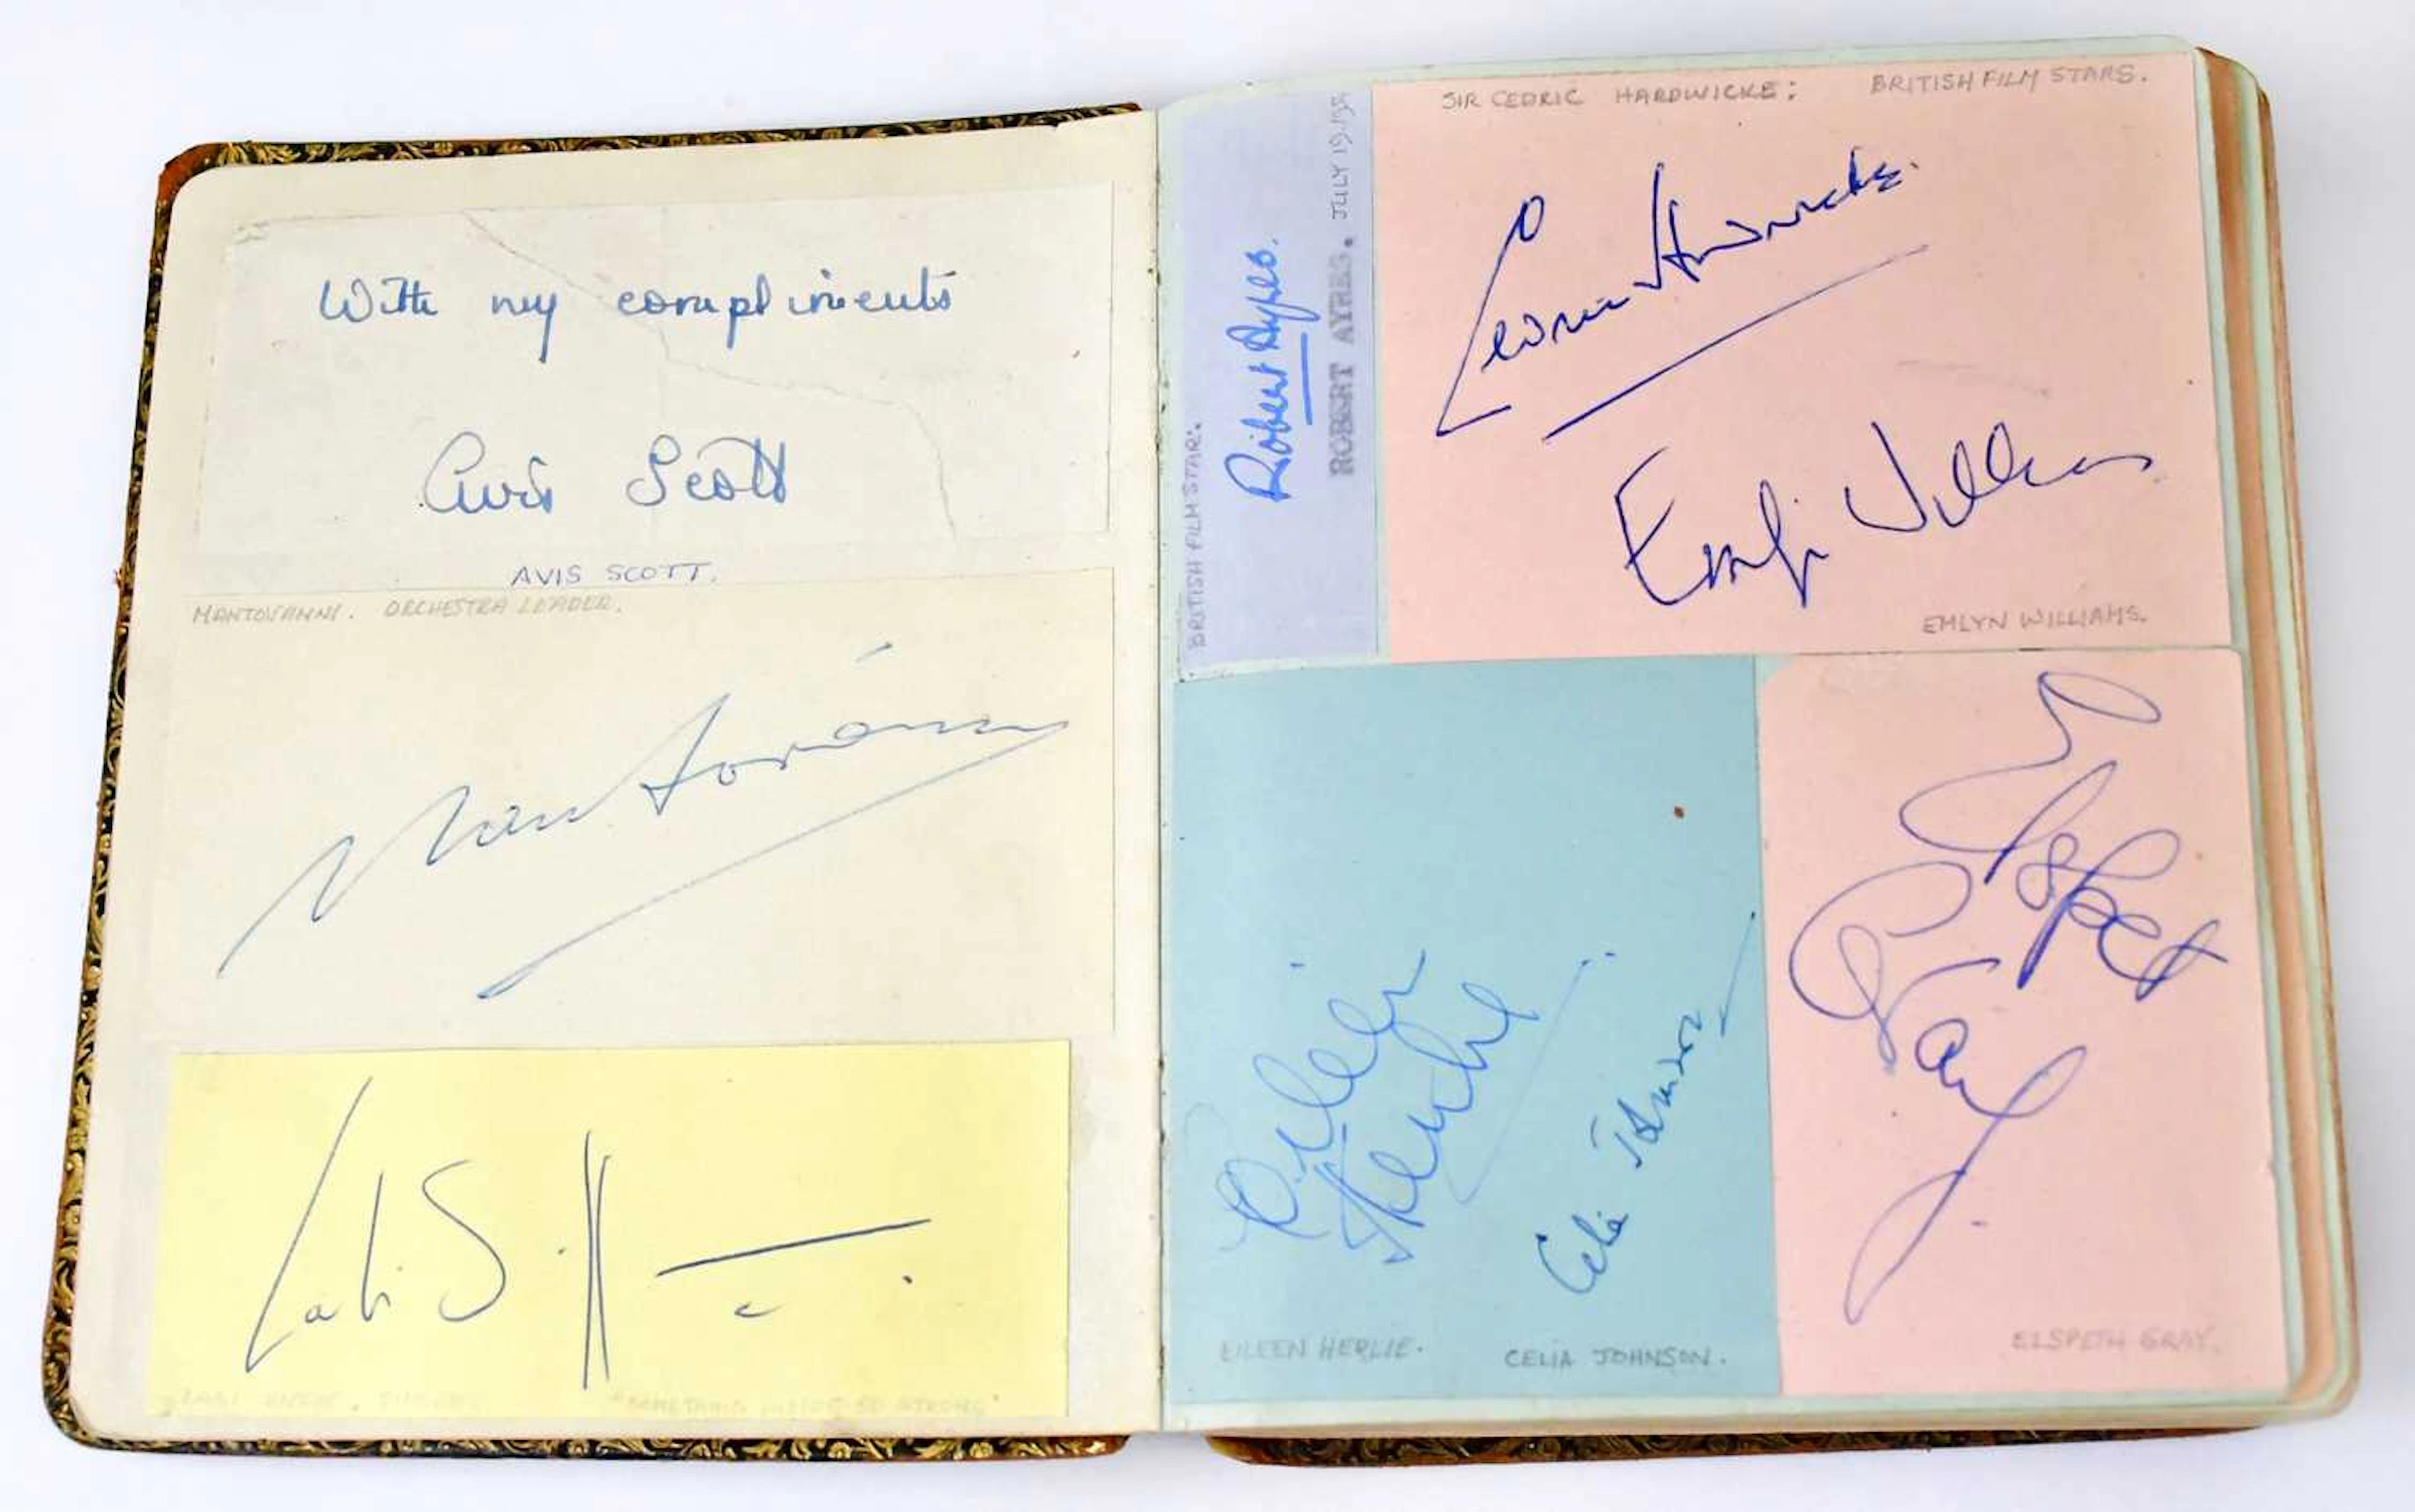 With my compliments
Avis Scott
AVIS SCOTT.
MANTOVANNI. ORCHESTRA LEADER.
Mantovani
Labi Siffre
LABI SIFFRE. SINGER.
"SOMETHING INSIDE SO STRONG"
BRITISH FILM STAR:
Robert Ayres.
ROBERT AYRES. JULY 19.
SIR CEDRIC HARDWICKE: BRITISH FILM STARS.
Cedric Hardwicke.
Emlyn Williams
EMLYN WILLIAMS.
Eileen Herlie
EILEEN HERLIE.
Celia Johnson
CELIA JOHNSON.
Elspet Gray
ELSPETH GRAY.